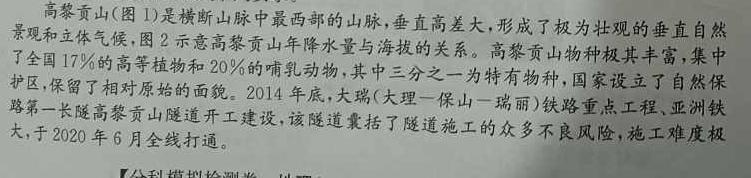 高黎贡山(图 1)是横断山脉中最西部的山脉,垂直高差大,形成了极为壮观的垂直自然
景观和立体气候,图 2 示意高黎贡山年降水量与海拔的关系。高黎贡山物种极其丰富,集中
了全国 17%的高等植物和 20%的哺乳动物,其中三分之一为特有物种,国家设立了自然保
护区,保留了相对原始的面貌。2014 年底,大瑞(大理—保山—瑞丽)铁路重点工程、亚洲铁
路第一长隧高黎贡山隧道开工建设,该隧道囊括了隧道施工的众多不良风险,施工难度极
大,于 2020 年 6 月全线打通。
【分科模拟检测卷